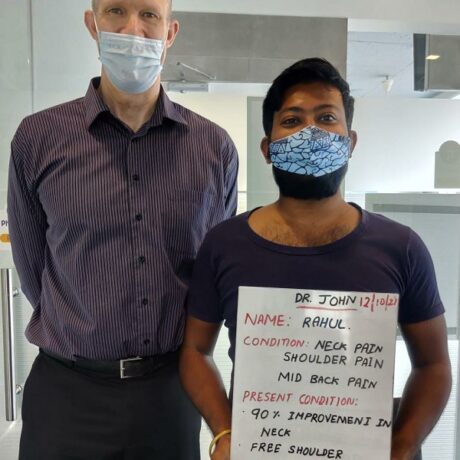 DR. JOHN 12/10/21
NAME: RAHUL.
CONDITION: NECK PAIN
SHOULDER PAIN
MID BACK PAIN
PRESENT CONDITION:
· 90% IMPROVEMENT IN
NECK
· FREE SHOULDER